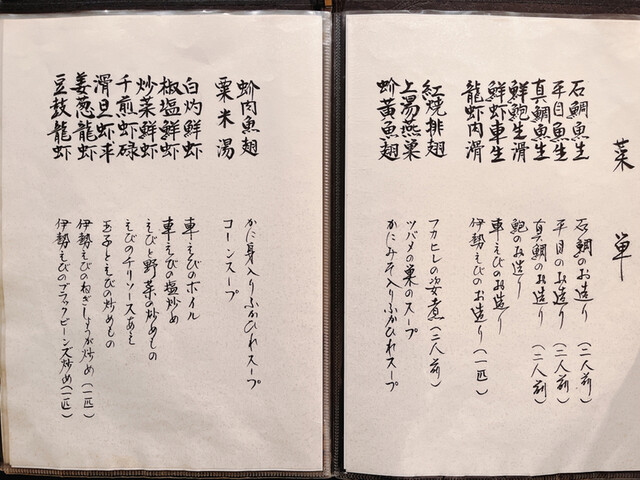 菜単
石鯛魚生 石鯛のお造り(二人前)
平目魚生 平目のお造り(二人前)
真鯛魚生 真鯛のお造り(二人前)
鮮鮑生滑 鮑のお造り
鮮虾車生 車えびのお造り
龍虾肉滑 伊勢えびのお造り(一匹)
紅焼排翅 フカヒレの姿煮(二人前)
上湯燕巣 ツバメの巣のスープ
蚧黄魚翅 かにみそ入りふかひれスープ
蚧肉魚翅 かに身入りふかひれスープ
粟米湯 コーンスープ
白灼鮮虾 車えびのボイル
椒塩鮮虾 車えびの塩炒め
炒菜鮮虾 えびと野菜の炒めもの
千煎虾碌 えびのチリソースあえ
滑旦虾球 玉子とえびの炒めもの
姜葱龍虾 伊勢えびのねぎしょうが炒め(一匹)
豆鼓龍虾 伊勢えびのブラックビーンズ炒め(一匹)